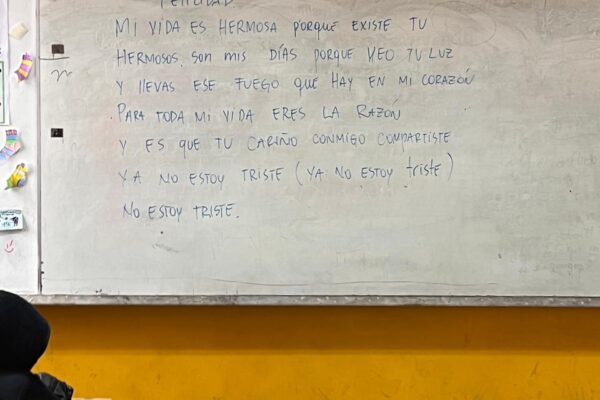 FELICIDAD
MI VIDA ES HERMOSA PORQUE EXISTE TU
HERMOSOS SON MIS DÍAS PORQUE VEO TU LUZ
Y LLEVAS ESE FUEGO QUE HAY EN MI CORAZÓN
PARA TODA MI VIDA ERES LA RAZÓN
Y ES QUE TU CARIÑO CONMIGO COMPARTISTE
YA NO ESTOY TRISTE (YA NO ESTOY triste)
NO ESTOY TRISTE.